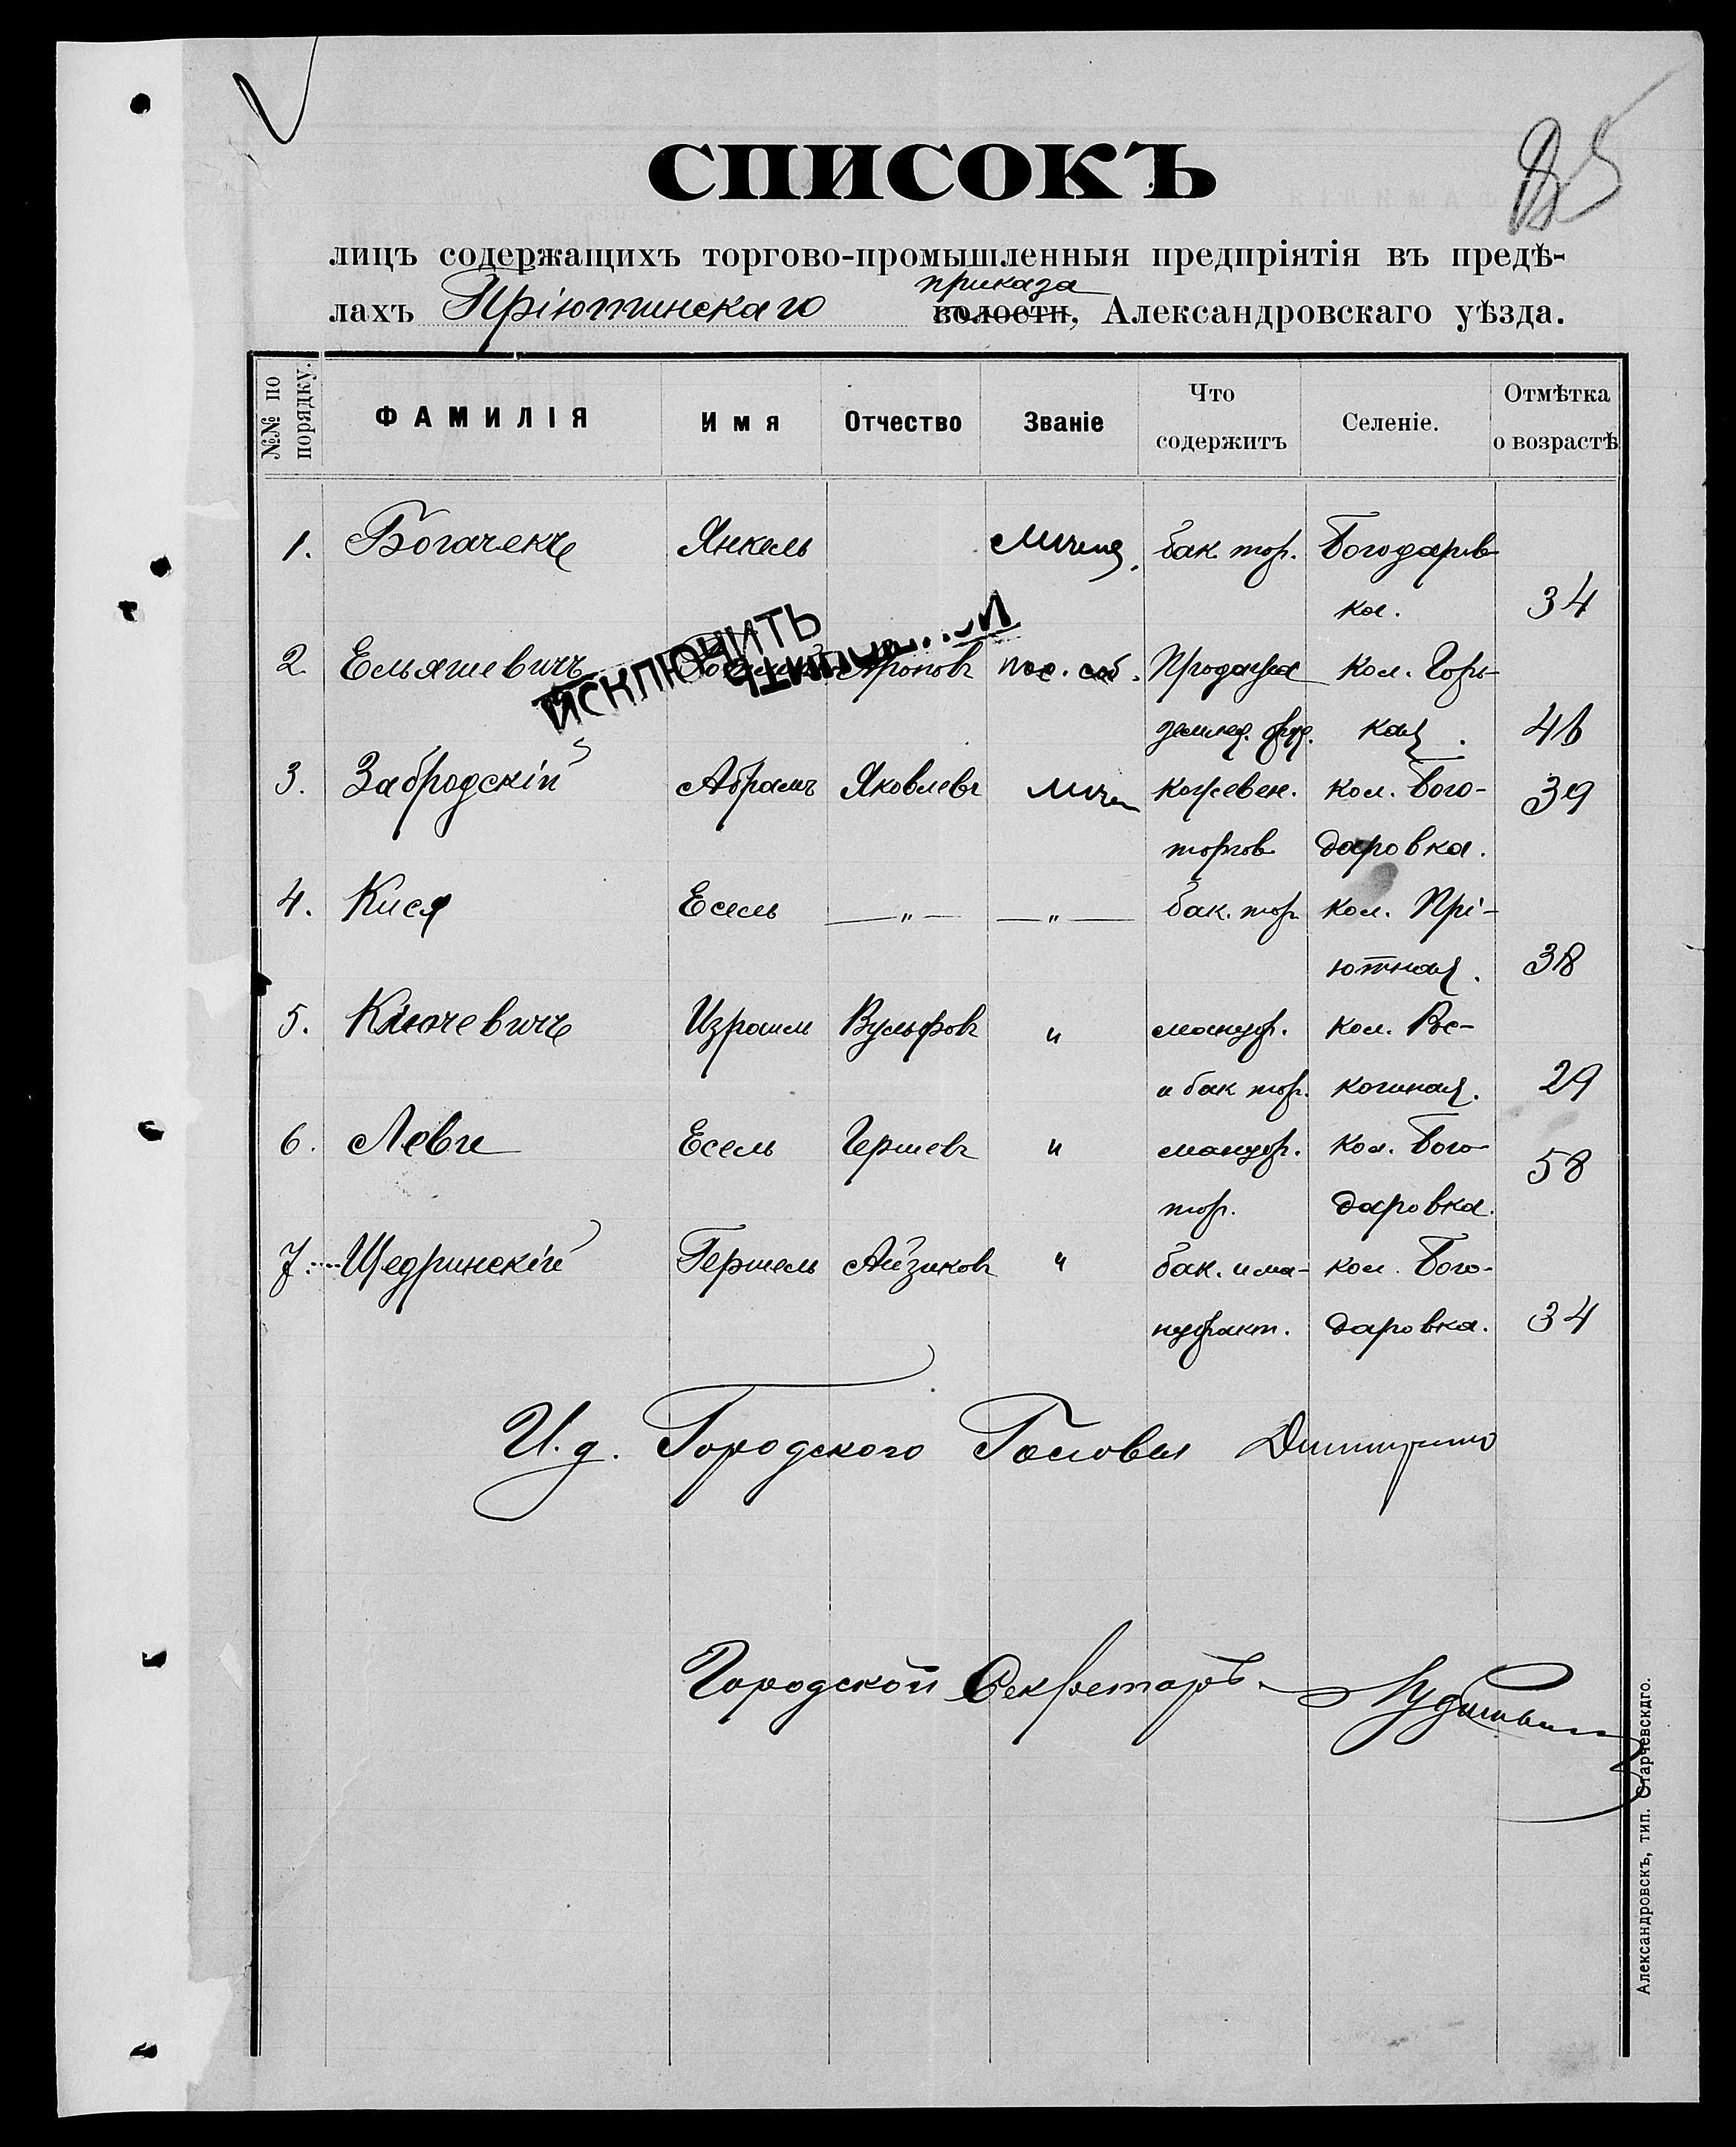 85
СПИСОКЪ
лицъ содержащихъ торгово-промышленныя предпріятія въ предѣ-
приказа
лахъ Пріютинскаго волости, Александровскаго уѣзда.
№№ по порядку. ФАМИЛІЯ Имя Отчество Званіе Что содержитъ Селеніе. Отмѣтка о возрастѣ
1. Богачекъ Янкель Мѣщ. бак тор. Богодаров
ка. 34
2. Ельяшевичъ Аронов пос. соб. Продажа кол. Горь-
ИСКЛЮЧИТЬ
землед. оруд. кая. 46
3. Забродскій Абрамъ Яковлевъ Мѣщ кожевен. кол. Бого- 39
торгов даровка.
4. Кися Есель —„— —„— бак. тор кол. Прі-
ютная. 38
5. Ключевичъ Израиль Вульфовъ „ мануф. кол. Рос-
и бак тор. кошная. 29
6. Леви Есель Гершевъ „ мануф. кол. Бого- 58
тор. даровка.
7. Щедринскій Гершель Айзиковъ „ бак. и ма- кол. Бого-
нуфакт. даровка. 34
И.д. Городского Головы
Городской Секретарь
Александровскъ, тип. Старчевскаго.